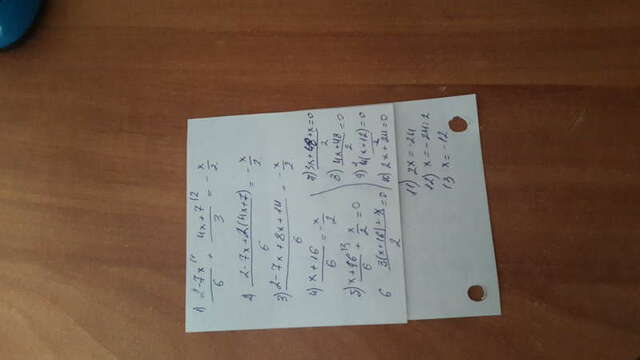 1) (2-7x)/6 + (4x+7)/3 = - x/2
2) (2-7x+2(4x+7))/6 = - x/2
3) (2-7x+8x+14)/6 = - x/2
4) (x+16)/6 = - x/2
5) (x+16)/6 + x/2 = 0
6 (3(x+16)+x)/2 = 0
7) (3x+48+x)/2 = 0
8) (4x+48)/2 = 0
9) 4(x+12)/2 = 0
10) 2x+24=0
11) 2x = -24
12) x = -24:2
13 x = -12